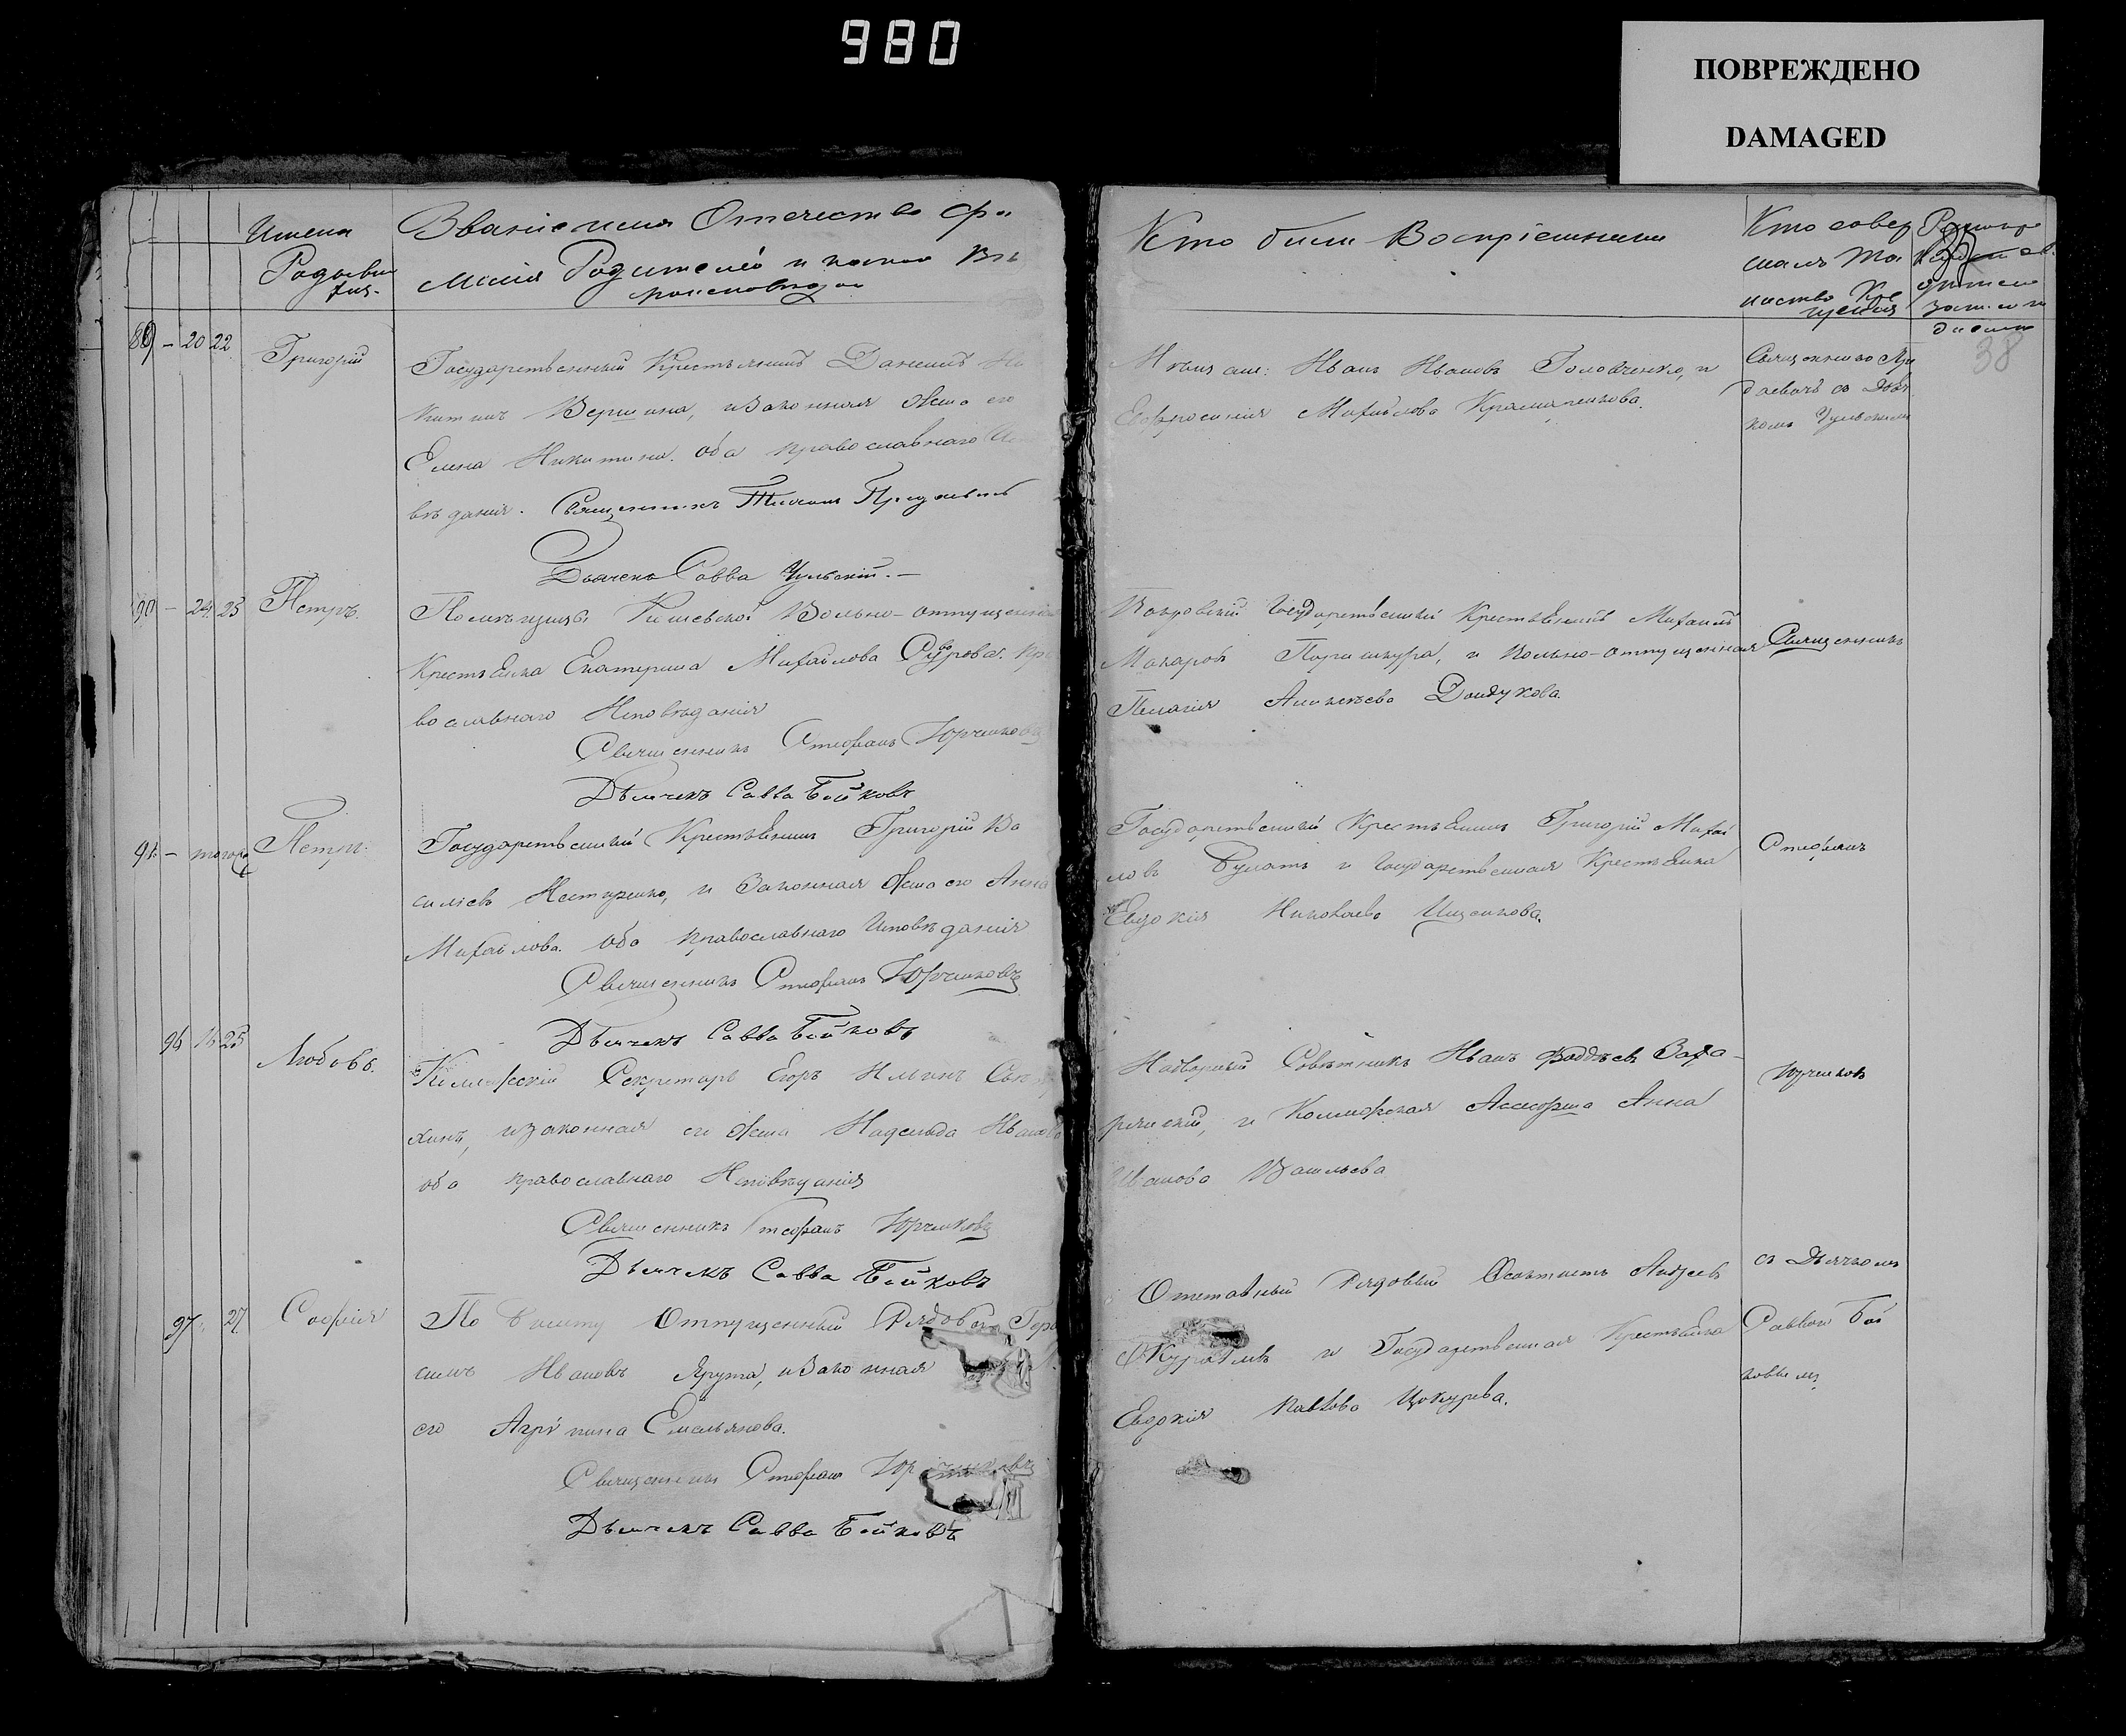 980
ПОВРЕЖДЕНО
DAMAGED
Имена
Родивши
хъя.
Званіе имя Отечество фа
милія Родителей и какого Вѣ
роисповѣда
Кто были Воспріемники
Кто совер
шалъ Та
инство Кре
щенія
38
89 - 20 22
Григорій
Государственный Крестьянинъ Даніилъ Ни
китинъ Вершина, и Законная Жена его
Елена Никитина. Оба православнаго Ис
вѣданія. Священникъ
Дьячекъ Савва Чульскій.
Мѣщане: Иванъ Ивановъ Головченко, и
Евфросинія Михайлова Крамаренкова.
90 - 24 25
Петръ.
Помѣщицы Вольно-отпущенная
Крестьянка Екатерина Михайлова Пра
вославнаго Исповѣданія
Священникъ Стефанъ Юрченковъ
Дьячекъ Савва Бойковъ
Государственный Крестьянинъ Михаилъ
Макаровъ и Вольно-отпущенная
Пелагія Алексѣева Дондукова.
Священникъ
91 - тогоже
Петръ.
Государственный Крестьянинъ Григорій Ва
сильевъ Нестеренко, и Законная Жена его Анна
Михайлова. Оба православнаго Исповѣданія
Священникъ Стефанъ Юрченковъ
Дьячекъ Савва Бойковъ
Государственный Крестьянинъ Григорій Михай
ловъ Булатъ и Государственная Крестьянка
Евдокія Николаева Ищенкова.
Стефанъ
96 16 25
Любовь.
Коллежскій Секретарь Егоръ Ильинъ
хинъ, и законная его Жена Надежда Иванова
оба православнаго Исповѣданія
Священникъ Стефанъ Юрченковъ
Дьячекъ Савва Бойковъ
Надворный Совѣтникъ Иванъ Фаддѣевъ
и Коллежская Ассесорша Анна
Иванова Васильева
Юрченковъ
97. 27
Софія
По билету Отпущенный Рядовой Гера
симъ Ивановъ Ярута, и Законная
его Агрипина Емельянова.
Священникъ Стефанъ
Дьячекъ Савва Бойковъ
Отставный Рядовый Андреевъ
и Государственная Крестьянка
Евдокія Павлова Цокурева.
съ Дьячкомъ
Саввою Бой
ковымъ